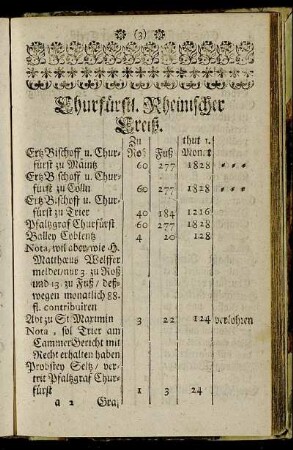 (3)
Churfürstl. Rheinischer
Creiß.
Zu thut 1.
Roß Fuß Monat
Ertz Bischoff u. Chur-
fürst zu Mäintz 60 277 1828
Ertz B schoff u. Chur-
fürst zu Cölln 60 277 1828
Ertz Bischoff u. Chur-
fürst zu Trier 40 184 1216
Pfaltzgraf Churfürst 60 277 1828
Balley Coblentz 4 20 128
Nota, wil aber/ wie H.
Matthæus Welffer
meldet/ nur 3. zu Roß
und 13. zu Fuß/ deß-
wegen monatlich 88.
fl. contribuiren
Abt zu St Maximin 3 22 124 verlohren
Nota, sol Trier am
CammerGericht mit
Recht erhalten haben
Probstey Seltz/ ver-
trit Pfaltzgraf Chur-
fürst 1 3 24
a 2 Gra-